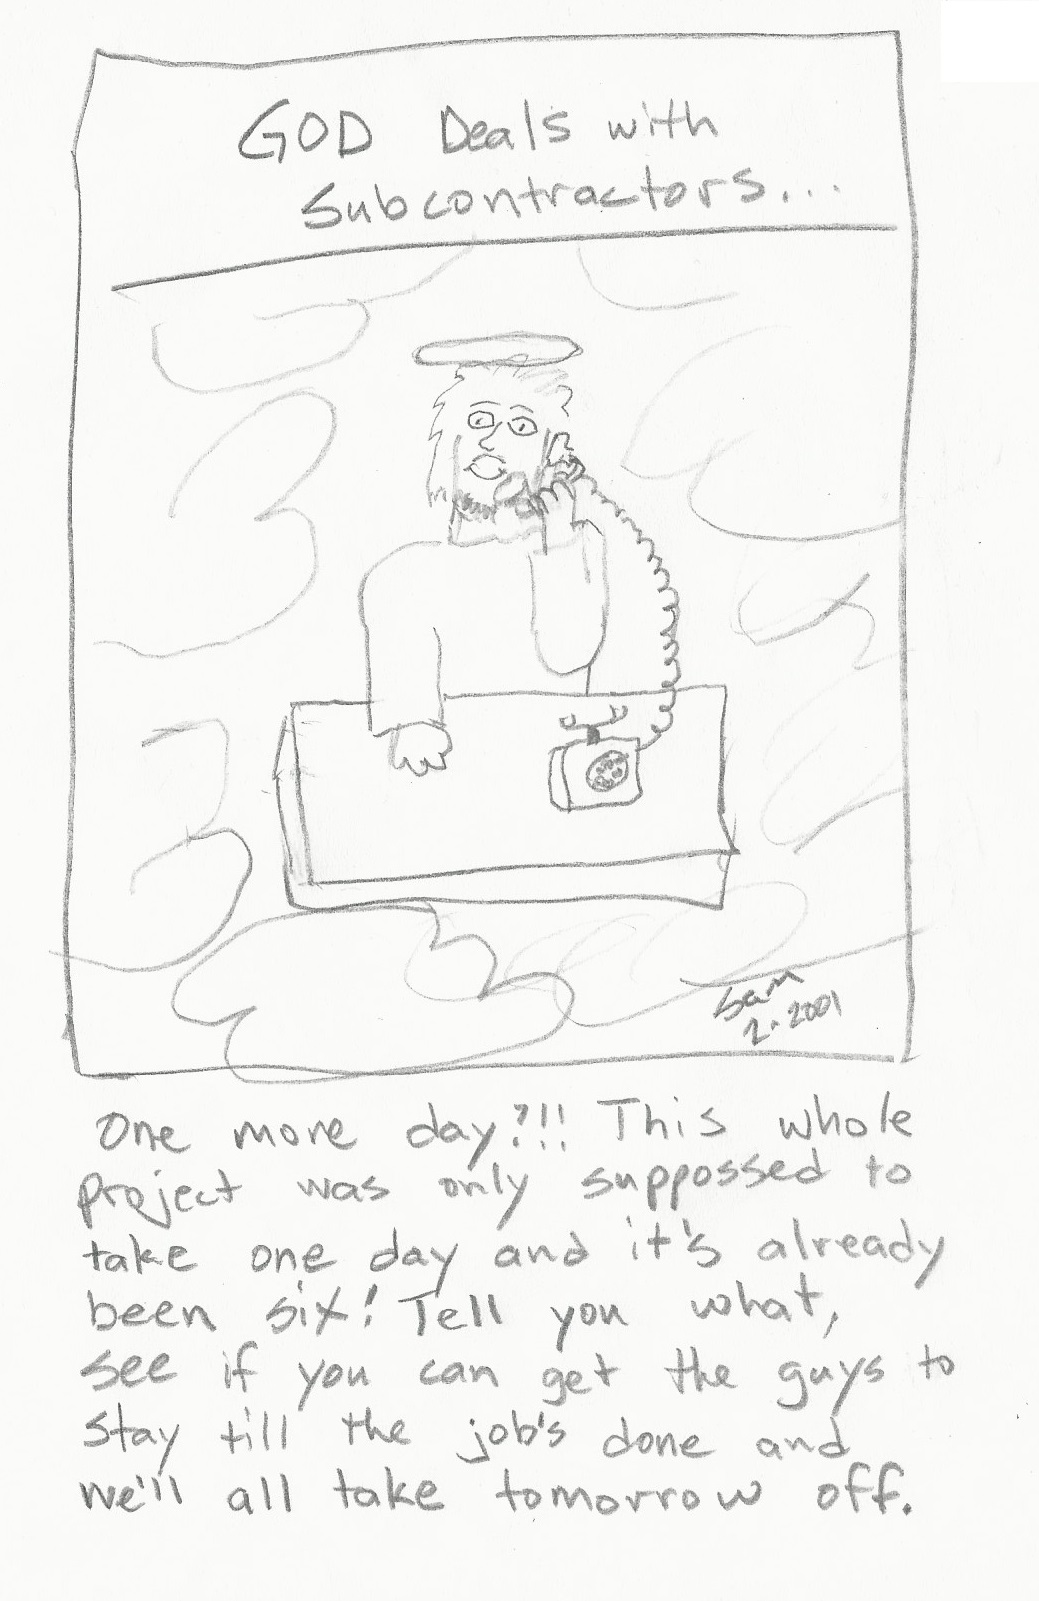 GOD Deals with
Subcontractors...
Sam
2.2001
One more day?!!! This whole
project was only suppossed to
take one day and it's already
been six! Tell you what,
see if you can get the guys to
stay till the job's done and
we'll all take tomorrow off.